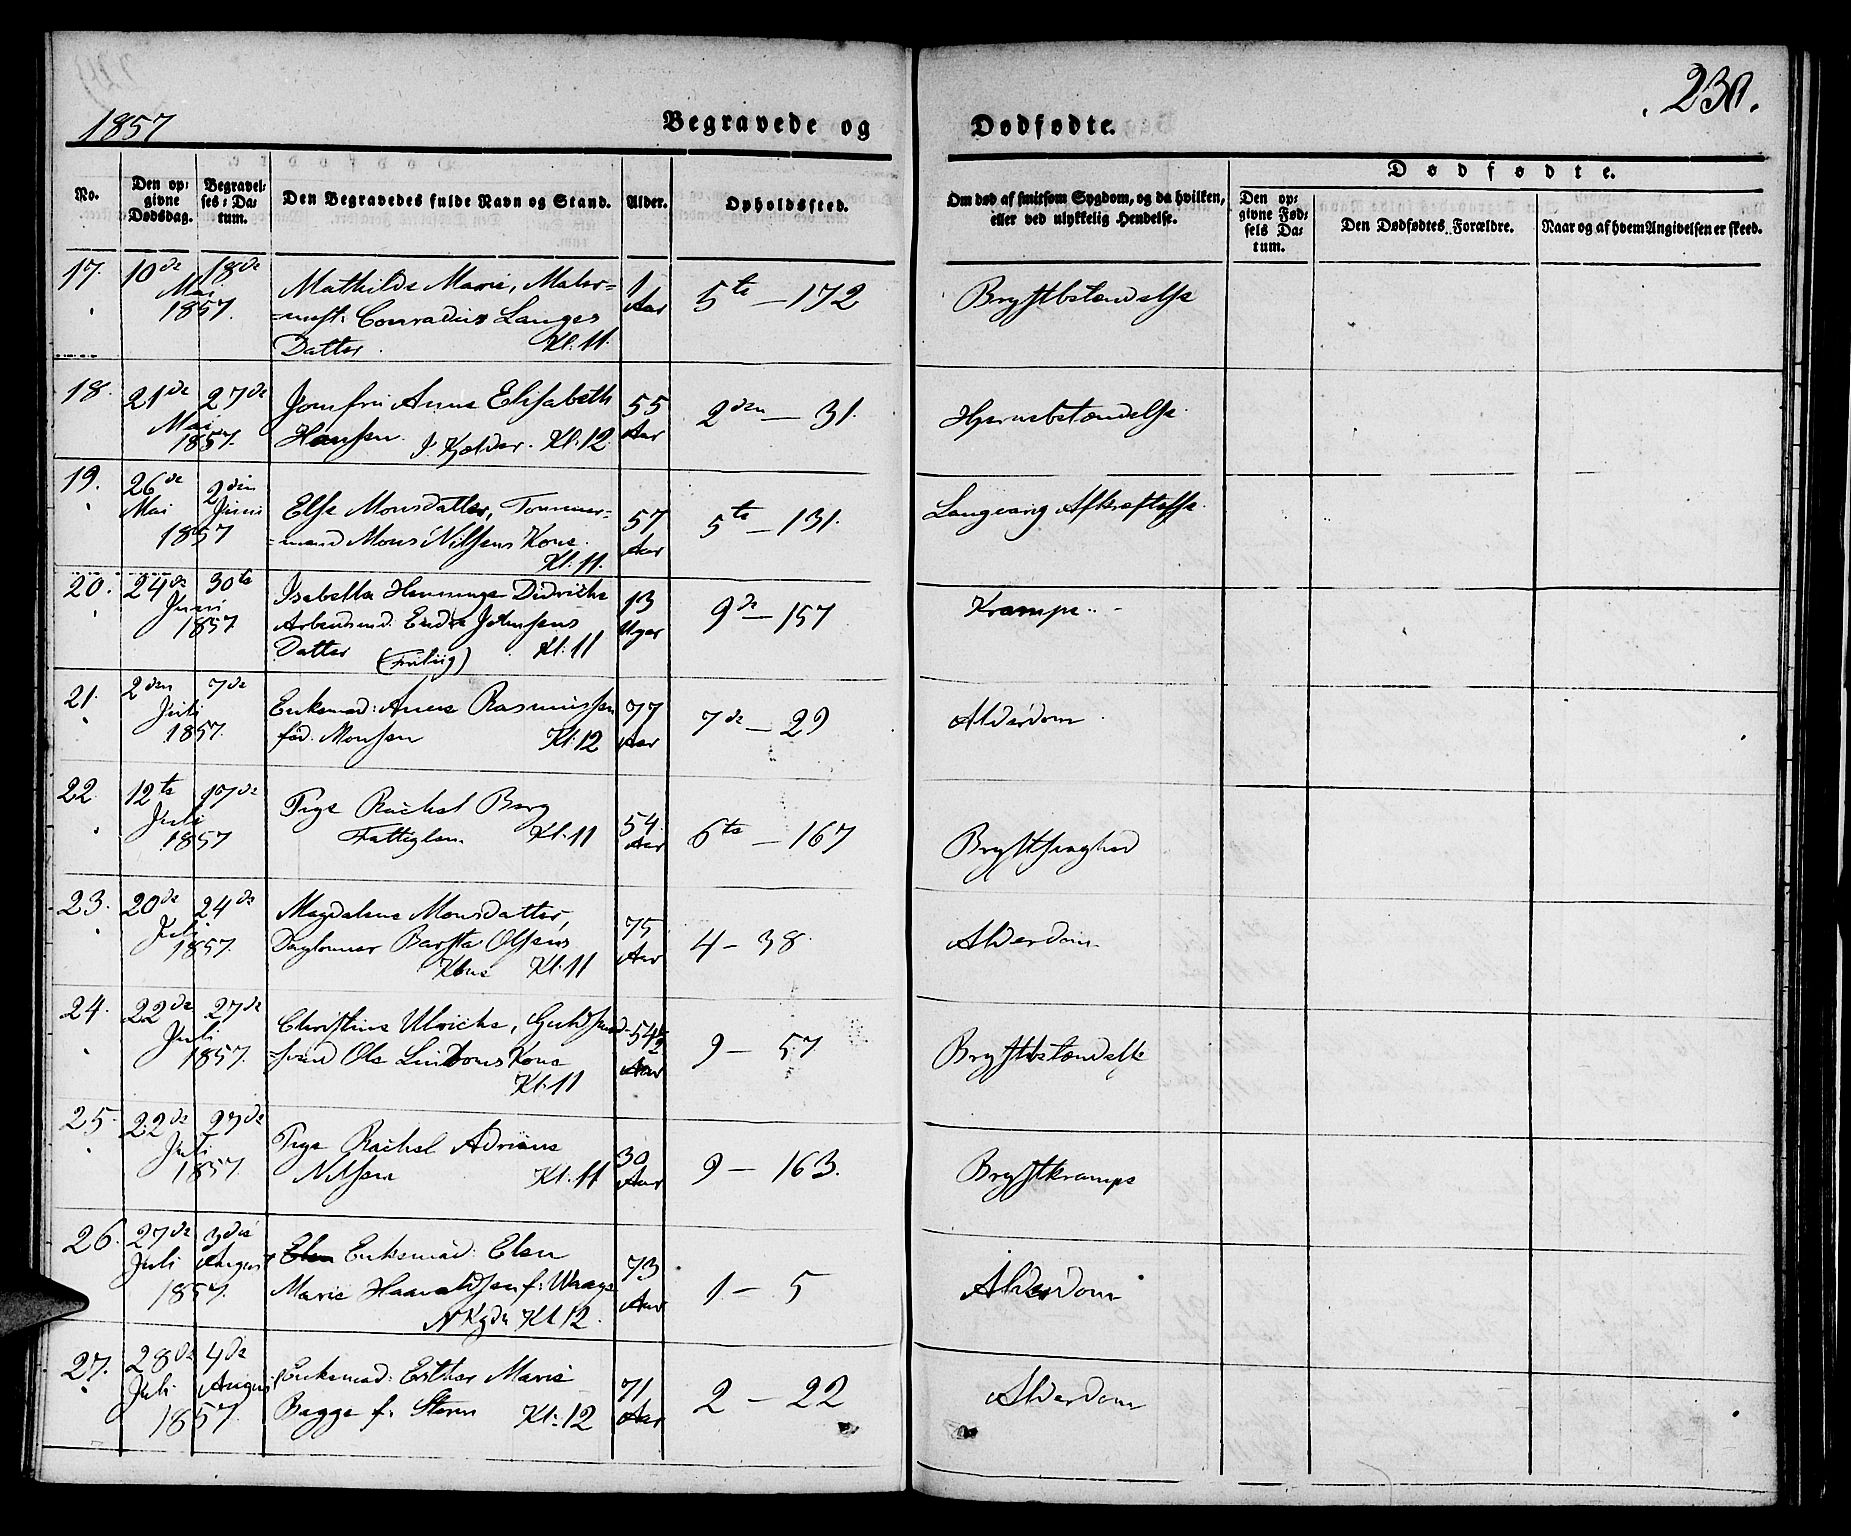 1857
Begravede og Dødfødte.
. 230.
No.
Den op-
givne
Dødsdag.
Begravel-
ses-Da-
tum.
Den Begravedes fulde Navn og Stand.
Alder.
Opholdssted.
Om død af smitsom Sygdom, og da hvilken,
eller ved ulykkelig Hendelse.
Dødfødte.
Den op-
givne Fød-
sels Da-
tum.
Den Dødfødtes Forældre.
Naar og af hvem Angivelsen er skeed.
17. 10de 18de Mai 1857.
Mathilde Marie, Maler=
=mest: Conradius Langes
Datter. Kl: 11.
1 Aar
5te – 172
Brystbetændelse
18. 21de 27de Mai 1857.
Jomfru Anne Elisabeth
Hansen. I. Kjelder. Kl: 12.
55 Aar
2den – 31.
Hjernebetændelse.
19. 26de Mai 2den Juni 1857
Else Monsdatter, Tømmer=
=mand Mons Nilsens Kone.
Kl: 11.
57 Aar
5te – 131.
Langvarig Afkræftelse.
20. 24de 30te Juni 1857
Isabella Henninge Didricke
Arbeidsmd. Endre Johnsens
Datter Kl: 11
13 Uger
9de – 157
Krampe
21. 2den 7de Juli 1857.
Enkemad: Anne Rasmussen
fød. Monsen Kl: 12
77 Aar
7de – 29
Alderdom
22. 12te 17de Juli 1857
Pige Rachel Berg
Fattiglem Kl: 11
54 Aar
6te – 167
Brystsvaghed
23. 20de 24de Juli 1857.
Magdalene Monsdatter,
Daglønner Olsens
Kone Kl: 11
75 Aar
4 – 38.
Alderdom
24. 22de 27de Juli 1857.
Christine Ulricke, Guldsmed-
=svend Ole Kone
Kl: 11
54½ Aar
9 – 57
Brystbetændelse
25. 22de 27de Juli 1857.
Pige Rachel Adriane
Nilsen Kl: 11
30 Aar
9 – 163.
Brystkrampe
26. 27de Juli 3die August 1857.
Elen Enkemad: Elen
Marie Haavaldsen f:
Kl 12.
73 Aar
1 – 5
Alderdom
27. 28de Juli 4de August 1857.
Enkemad: Esther Marie
Bagge f: Storm Kl: 12
71 Aar
2 – 22
Alderdom